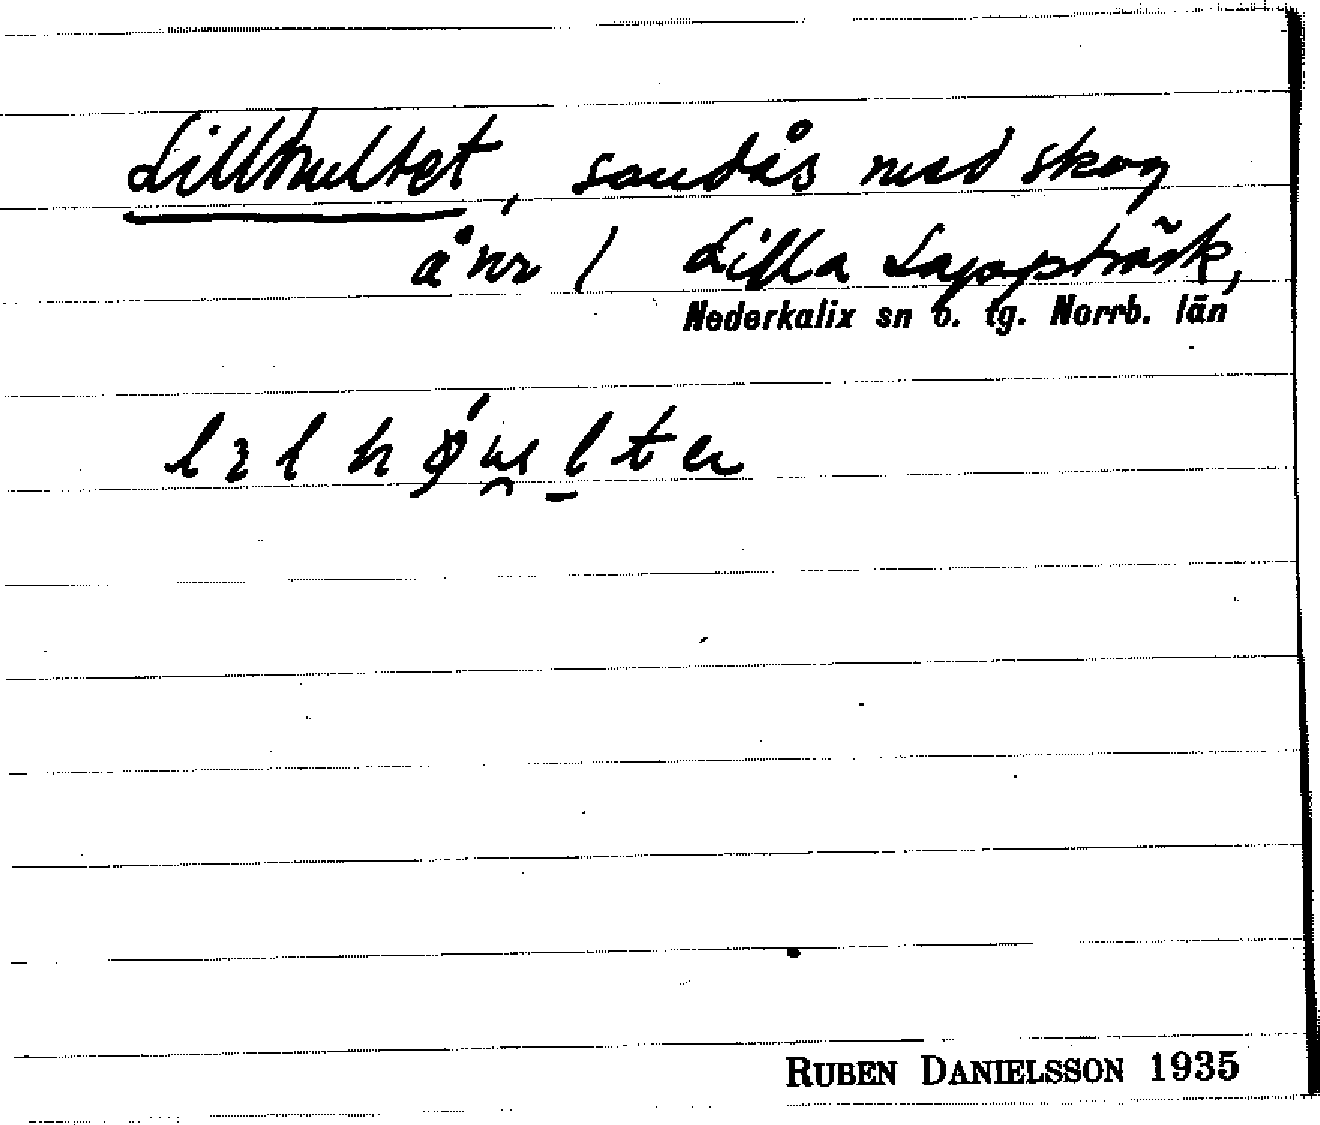 Lillhultet, sandås med skog
å nr 1 Lilla Lappträsk,
Nederkalix sn o. tg. Norrb. län
RUBEN DANIELSSON 1935